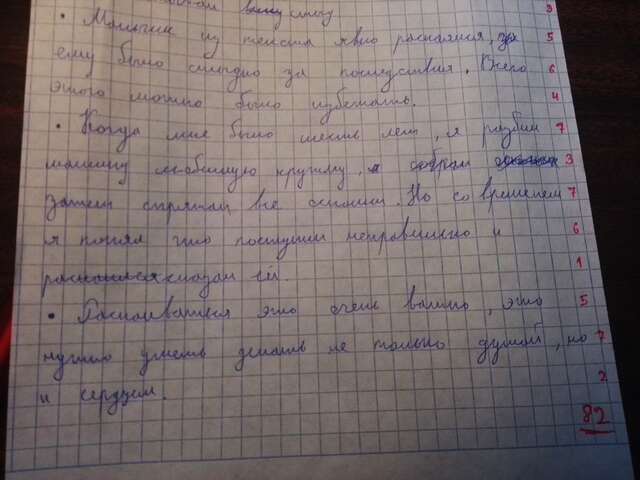 вину 3
• Мальчик из текста явно раскаялся, 5
ему было стыдно за последствия. 6
этого можно было избежать. 4
• Когда мне было шесть лет, я разбил 7
мамину любимую кружку, я собрал 3
Затем спрятал все осколки. Но со временем 7
я понял что поступил неправильно и 6
сказал ей. 1
• Раскаиваться это очень важно, это 5
нужно уметь делать не только душой, но 7
и сердцем. 2
82